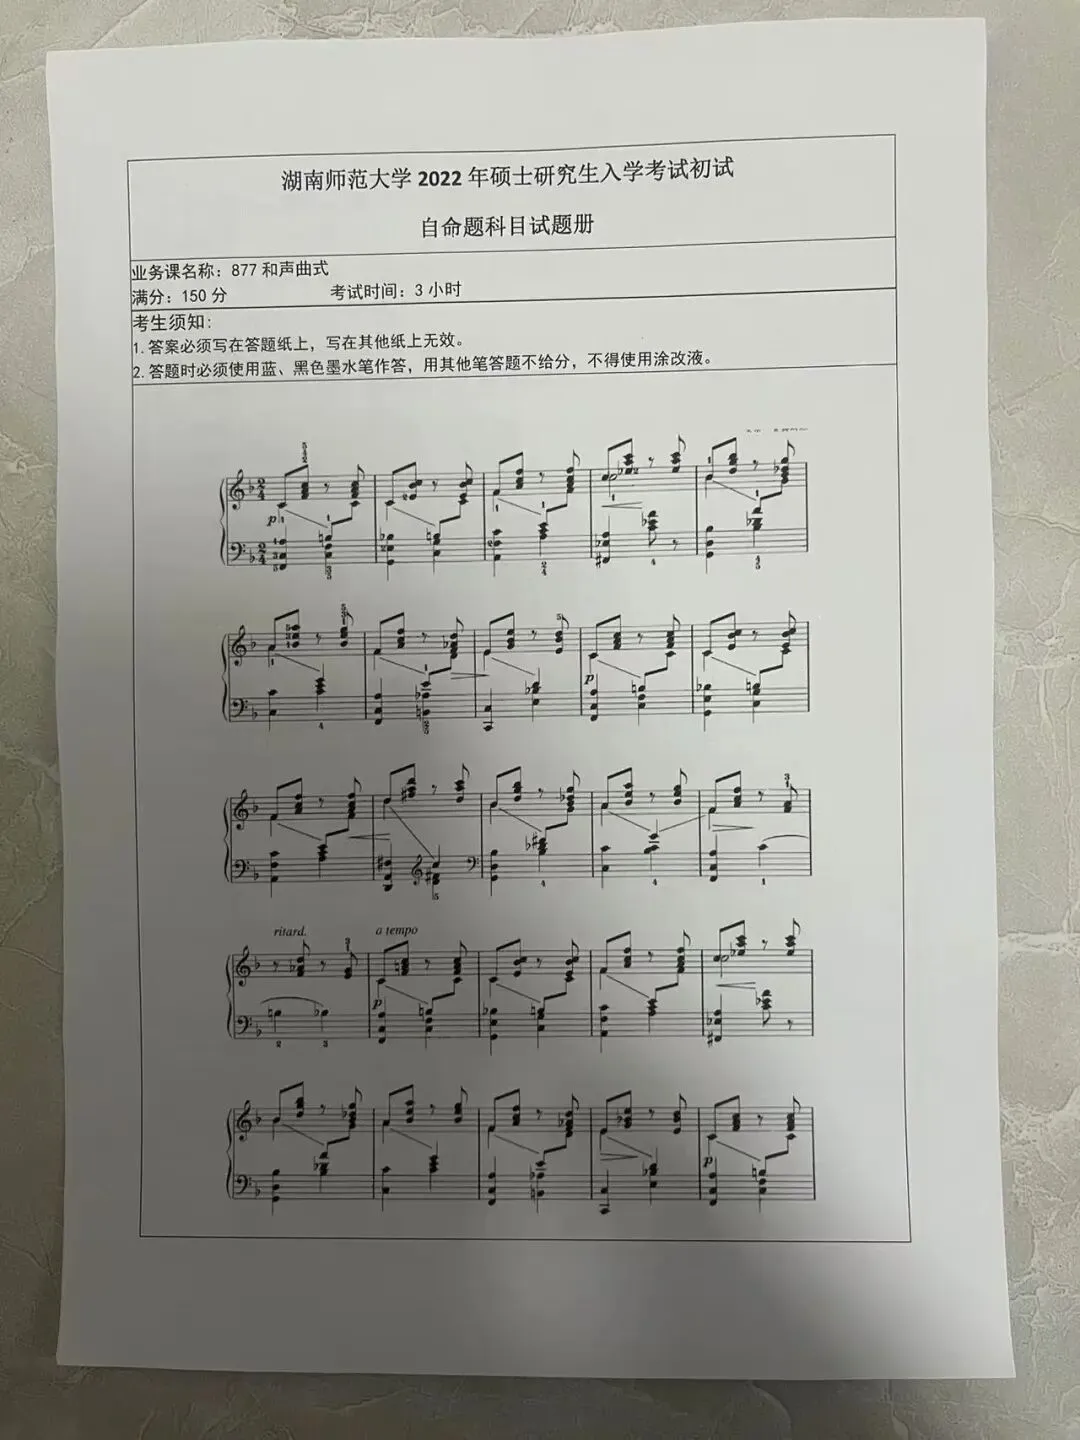 湖南师范大学 2022 年硕士研究生入学考试初试
自命题科目试题册
业务课名称：877 和声曲式
满分：150 分 考试时间：3 小时
考生须知：
1.答案必须写在答题纸上，写在其他纸上无效。
2.答题时必须使用蓝、黑色墨水笔作答，用其他笔答题不给分，不得使用涂改液。
p
p
ritard. a tempo
p
p